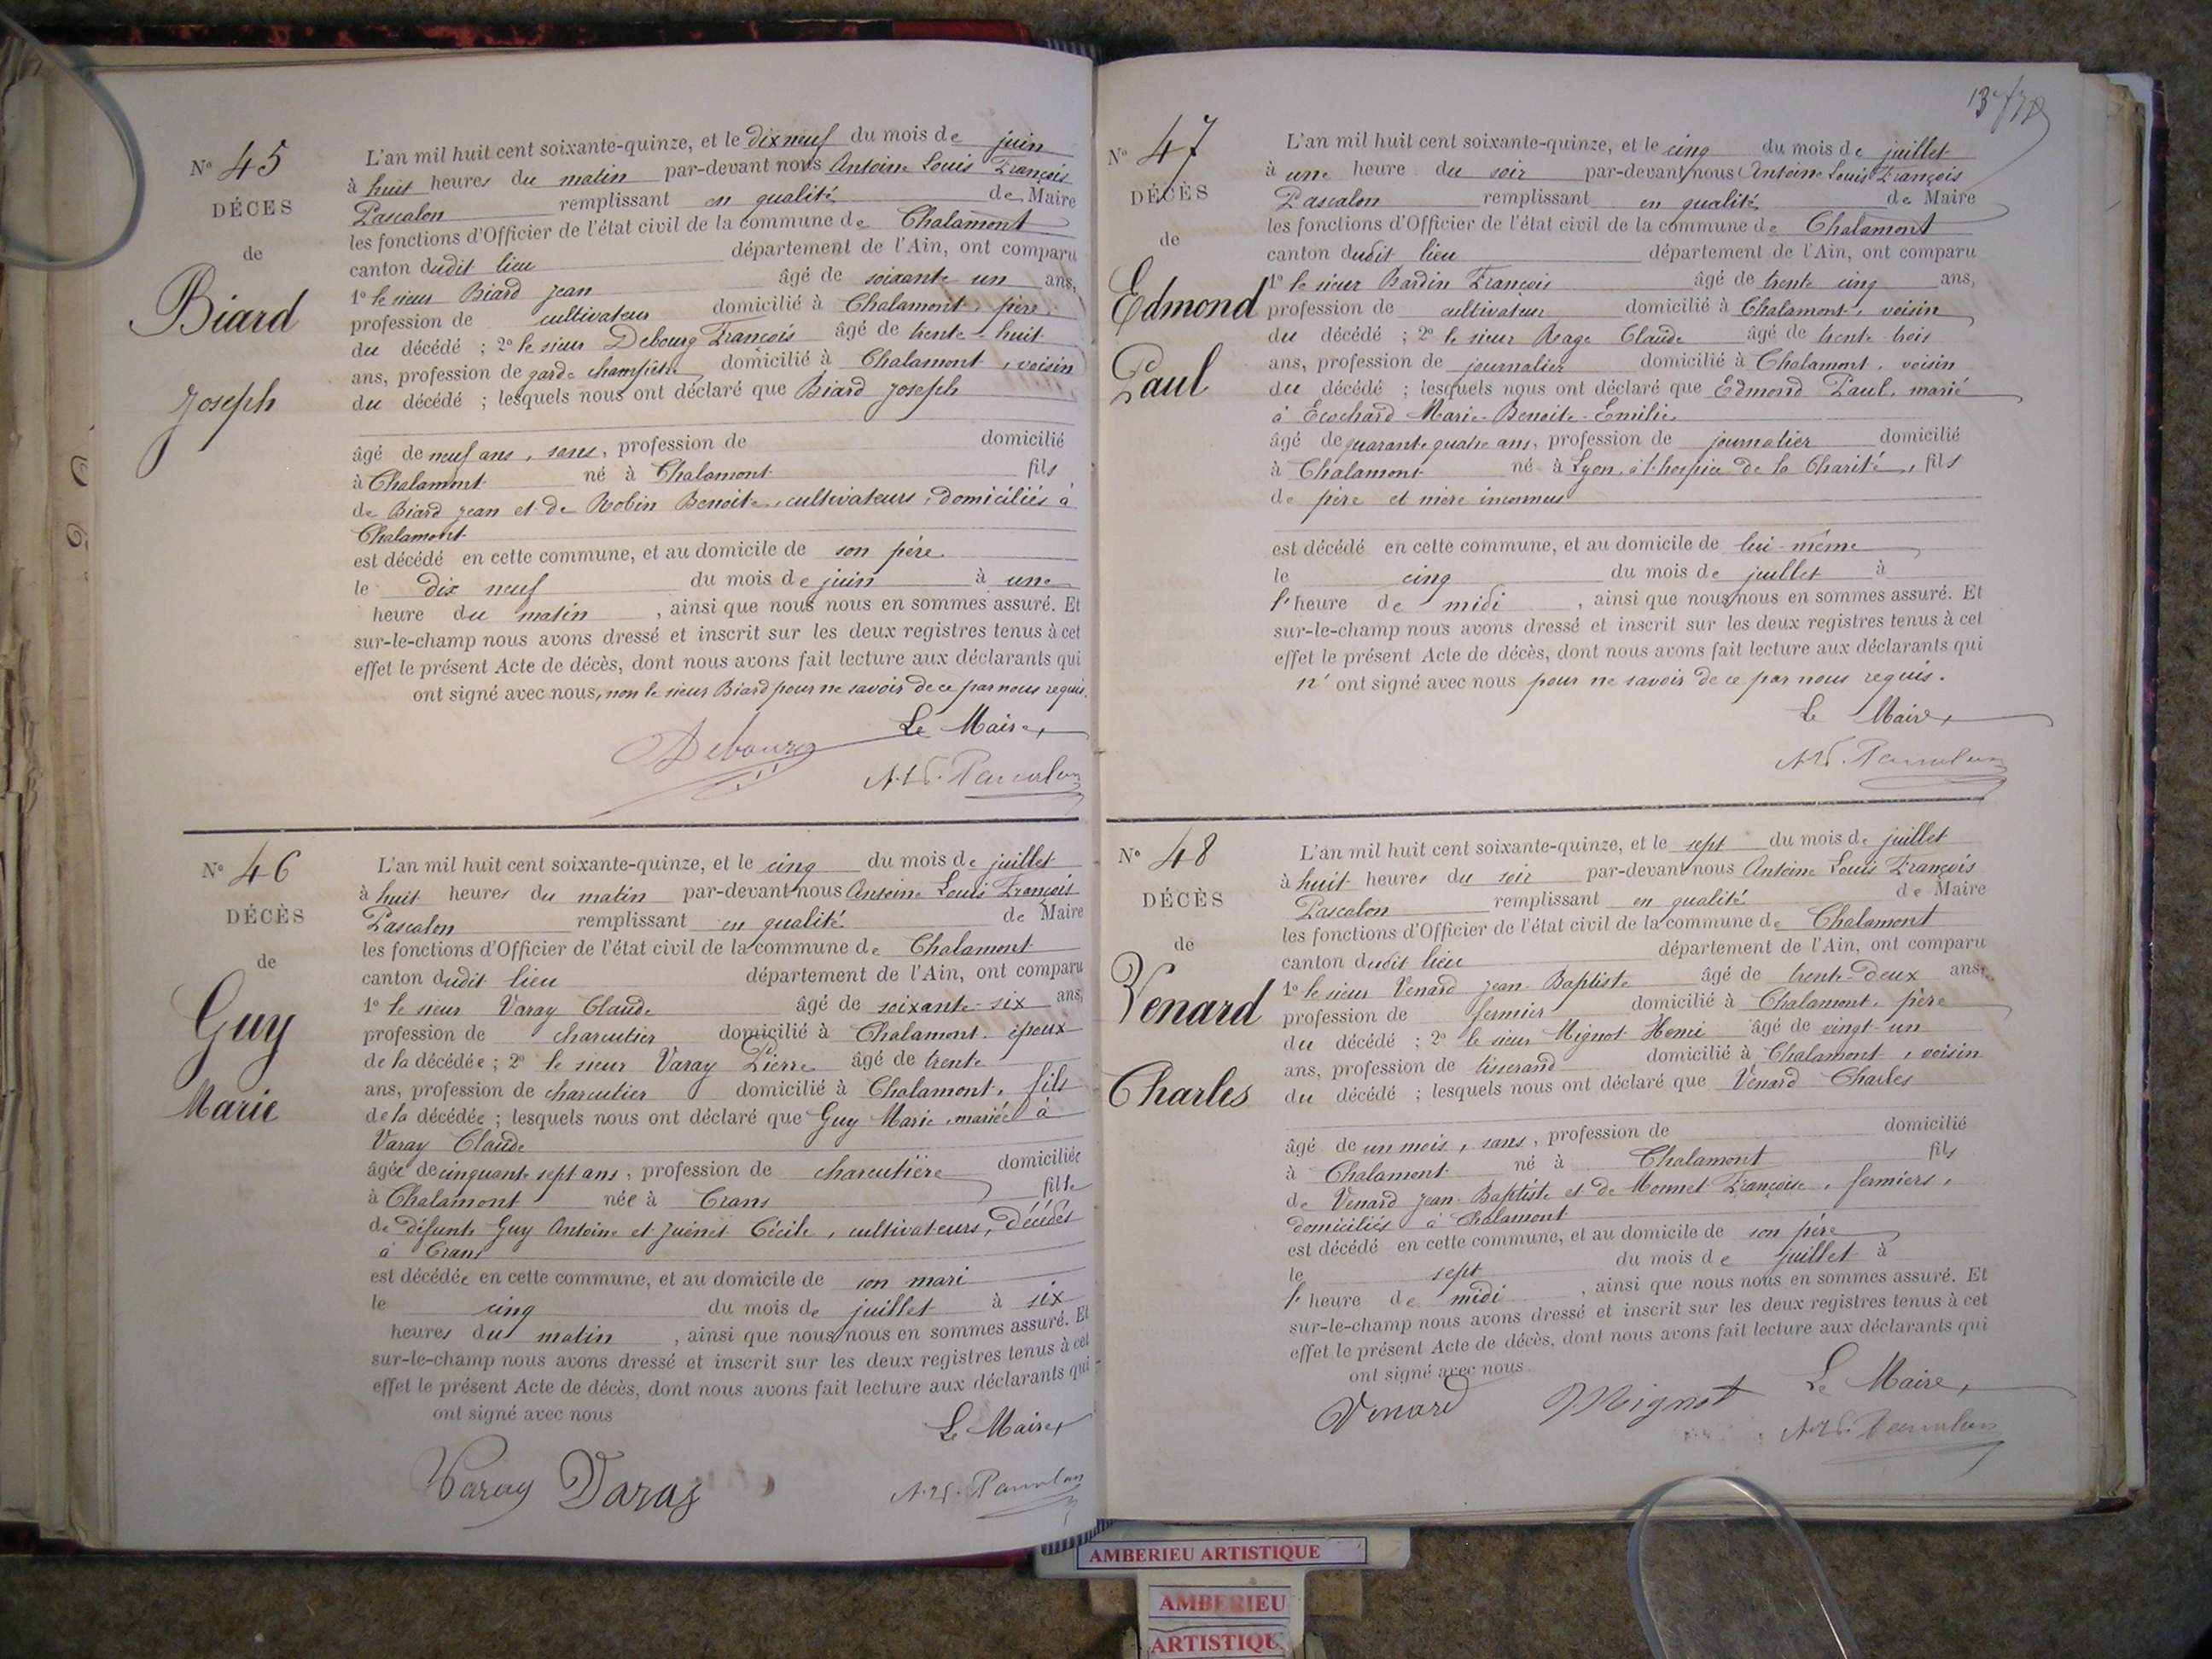 N° 45
DÉCES
de
Biard
Joseph
L'an mil huit cent soixante-quinze, et le dix neuf du mois de juin
à huit heures du matin par-devant nous Antoine Louis François
Pascalon remplissant en qualité de Maire
les fonctions d'Officier de l'état civil de la commune de Chalamont
canton dudit lieu département de l'Ain, ont comparu
1° le sieur Biard Jean âgé de soixante un ans,
profession de cultivateur domicilié à Chalamont, père
du décédé ; 2° le sieur Debourg François âgé de trente-huit
ans, profession de garde champêtre domicilié à Chalamont, voisin
du décédé ; lesquels nous ont déclaré que Biard Joseph
âgé de neuf ans, sans, profession de domicilié
à Chalamont né à Chalamont fils
de Biard Jean et de Robin Benoite, cultivateurs, domiciliés à
Chalamont
est décédé en cette commune, et au domicile de son père
le dix neuf du mois de juin à une
heure du matin, ainsi que nous nous en sommes assuré. Et
sur-le-champ nous avons dressé et inscrit sur les deux registres tenus à cet
effet le présent Acte de décès, dont nous avons fait lecture aux déclarants qui
ont signé avec nous, non le sieur Biard pour ne savoir de ce par nous requis.
Le Maire,
Debourg
A. L. F. Pascalon
N° 46
DÉCÈS
de
Guy
Marie
L'an mil huit cent soixante-quinze, et le cinq du mois de juillet
à huit heures du matin par-devant nous Antoine Louis François
Pascalon remplissant en qualité de Maire
les fonctions d'Officier de l'état civil de la commune de Chalamont
canton dudit lieu département de l'Ain, ont comparu
1° le sieur Varay Claude âgé de soixante-six ans,
profession de charcutier domicilié à Chalamont, époux
de la décédée ; 2° le sieur Varay Pierre âgé de trente
ans, profession de charcutier domicilié à Chalamont, fils
de la décédée ; lesquels nous ont déclaré que Guy Marie, mariée à
Varay Claude
âgée de cinquante sept ans, profession de charcutière domiciliée
à Chalamont née à Crans fille
de défunts Guy Antoine et Juénet Cécile, cultivateurs, décédés
à Crans
est décédée en cette commune, et au domicile de son mari
le cinq du mois de juillet à six
heures du matin, ainsi que nous nous en sommes assuré. Et
sur-le-champ nous avons dressé et inscrit sur les deux registres tenus à cet
effet le présent Acte de décès, dont nous avons fait lecture aux déclarants qui
ont signé avec nous
Le Maire,
Varay Varay
A. L. F. Pascalon
N° 47
DÉCÈS
de
Edmond
Paul
L'an mil huit cent soixante-quinze, et le cinq du mois de juillet
à une heure du soir par-devant nous Antoine Louis François
Pascalon remplissant en qualité de Maire
les fonctions d'Officier de l'état civil de la commune de Chalamont
canton dudit lieu département de l'Ain, ont comparu
1° le sieur Bardin François âgé de trente cinq ans,
profession de cultivateur domicilié à Chalamont, voisin
du décédé ; 2° le sieur Rage Claude âgé de trente-trois
ans, profession de journalier domicilié à Chalamont, voisin
du décédé ; lesquels nous ont déclaré que Edmond Paul, marié
à Ecochard Marie-Benoite-Emilie
âgé de quarante quatre ans, profession de journalier domicilié
à Chalamont né à Lyon, à l'hospice de la Charité, fils
de père et mère inconnus
est décédé en cette commune, et au domicile de lui-même
le cinq du mois de juillet à
l'heure de midi, ainsi que nous nous en sommes assuré. Et
sur-le-champ nous avons dressé et inscrit sur les deux registres tenus à cet
effet le présent Acte de décès, dont nous avons fait lecture aux déclarants qui
n'ont signé avec nous pour ne savoir de ce par nous requis.
Le Maire,
A. L. F. Pascalon
N° 48
DÉCÈS
de
Venard
Charles
L'an mil huit cent soixante-quinze, et le sept du mois de juillet
à huit heures du soir par-devant nous Antoine Louis François
Pascalon remplissant en qualité de Maire
les fonctions d'Officier de l'état civil de la commune de Chalamont
canton dudit lieu département de l'Ain, ont comparu
1° le sieur Venard Jean-Baptiste âgé de trente-deux ans,
profession de fermier domicilié à Chalamont, père
du décédé ; 2° le sieur Mignot Henri âgé de vingt-un
ans, profession de tisserand domicilié à Chalamont, voisin
du décédé ; lesquels nous ont déclaré que Venard Charles
âgé de un mois, sans, profession de domicilié
à Chalamont né à Chalamont fils
de Venard Jean-Baptiste et de Monnet Françoise, fermiers,
domiciliés à Chalamont
est décédé en cette commune, et au domicile de son père
le sept du mois de juillet à
l'heure de midi, ainsi que nous nous en sommes assuré. Et
sur-le-champ nous avons dressé et inscrit sur les deux registres tenus à cet
effet le présent Acte de décès, dont nous avons fait lecture aux déclarants qui
ont signé avec nous
Le Maire,
Venard Mignot
A. L. F. Pascalon
AMBERIEU ARTISTIQUE
AMBERIEU
ARTISTIQUE